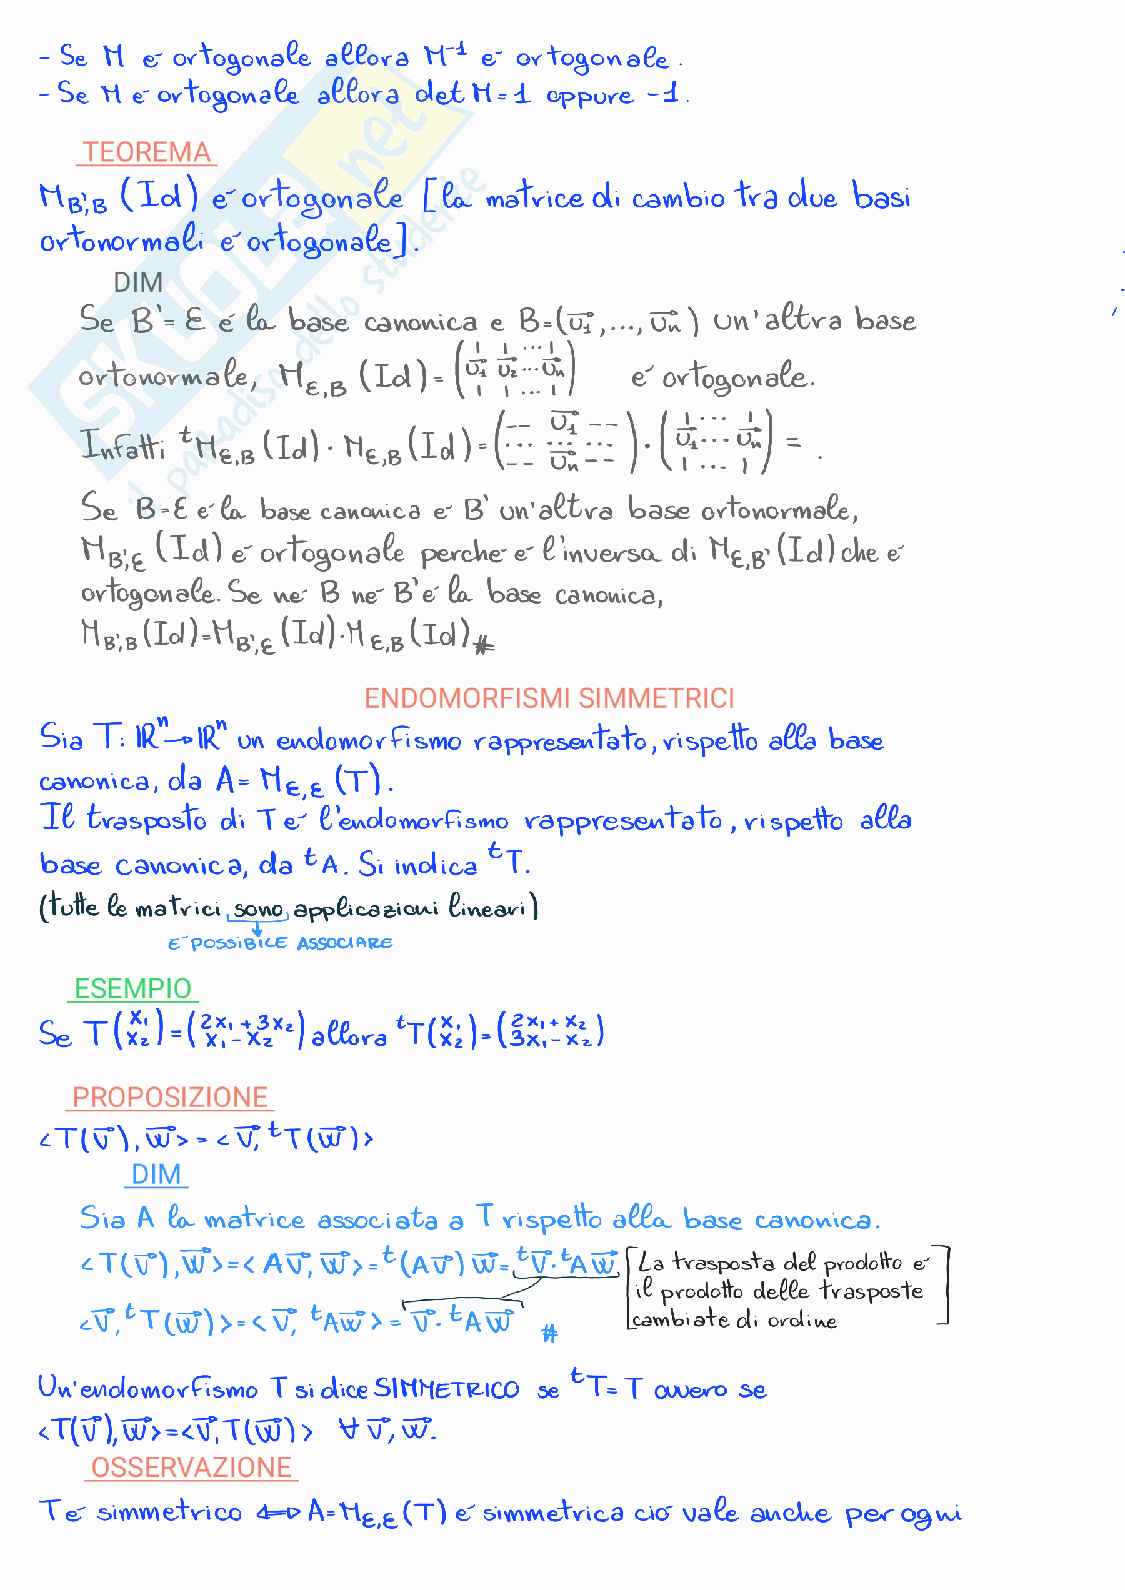 - Se M é ortogonale allora M⁻¹ é ortogonale.
- Se M é ortogonale allora det M = 1 oppure -1.
TEOREMA
M_B',B (Id) é ortogonale [la matrice di cambio tra due basi
ortonormali é ortogonale].
DIM
Se B' = ℰ é la base canonica e B=(v⃗1, ..., v⃗n) un'altra base
ortonormale, M_ℰ,B (Id) = (v⃗1 v⃗2 ... v⃗n) é ortogonale.
Infatti ᵗM_ℰ,B (Id) · M_ℰ,B (Id) = (-- v⃗1 -- ... ... ... -- v⃗n --) · (v⃗1 ... v⃗n) = .
Se B=ℰ é la base canonica e B' un'altra base ortonormale,
M_B',ℰ (Id) é ortogonale perché é l'inversa di M_ℰ,B' (Id) che é
ortogonale. Se né B né B' é la base canonica,
M_B',B (Id) = M_B',ℰ (Id) · M_ℰ,B (Id) #
ENDOMORFISMI SIMMETRICI
Sia T: ℝⁿ → ℝⁿ un endomorfismo rappresentato, rispetto alla base
canonica, da A = M_ℰ,ℰ (T).
Il trasposto di T é l'endomorfismo rappresentato, rispetto alla
base canonica, da ᵗA. Si indica ᵗT.
(tutte le matrici sono applicazioni lineari)
É POSSIBILE ASSOCIARE
ESEMPIO
Se T(x₁ x₂) = (2x₁+3x₂ x₁-x₂) allora ᵗT(x₁ x₂) = (2x₁+x₂ 3x₁-x₂)
PROPOSIZIONE
<T(v⃗), w⃗> = <v⃗, ᵗT(w⃗)>
DIM
Sia A la matrice associata a T rispetto alla base canonica.
<T(v⃗), w⃗> = <Av⃗, w⃗> = ᵗ(Av⃗) w⃗ = ᵗv⃗ · ᵗA w⃗ [La trasposta del prodotto é
il prodotto delle trasposte
<v⃗, ᵗT(w⃗)> = <v⃗, ᵗAw⃗> = v⃗ · ᵗA w⃗ # cambiate di ordine]
Un'endomorfismo T si dice SIMMETRICO se ᵗT = T ovvero se
<T(v⃗), w⃗> = <v⃗, T(w⃗)> ∀ v⃗, w⃗.
OSSERVAZIONE
T é simmetrico ⇔ A = M_ℰ,ℰ (T) é simmetrica ció vale anche per ogni
SKUOLA.net
il paradiso dello studente